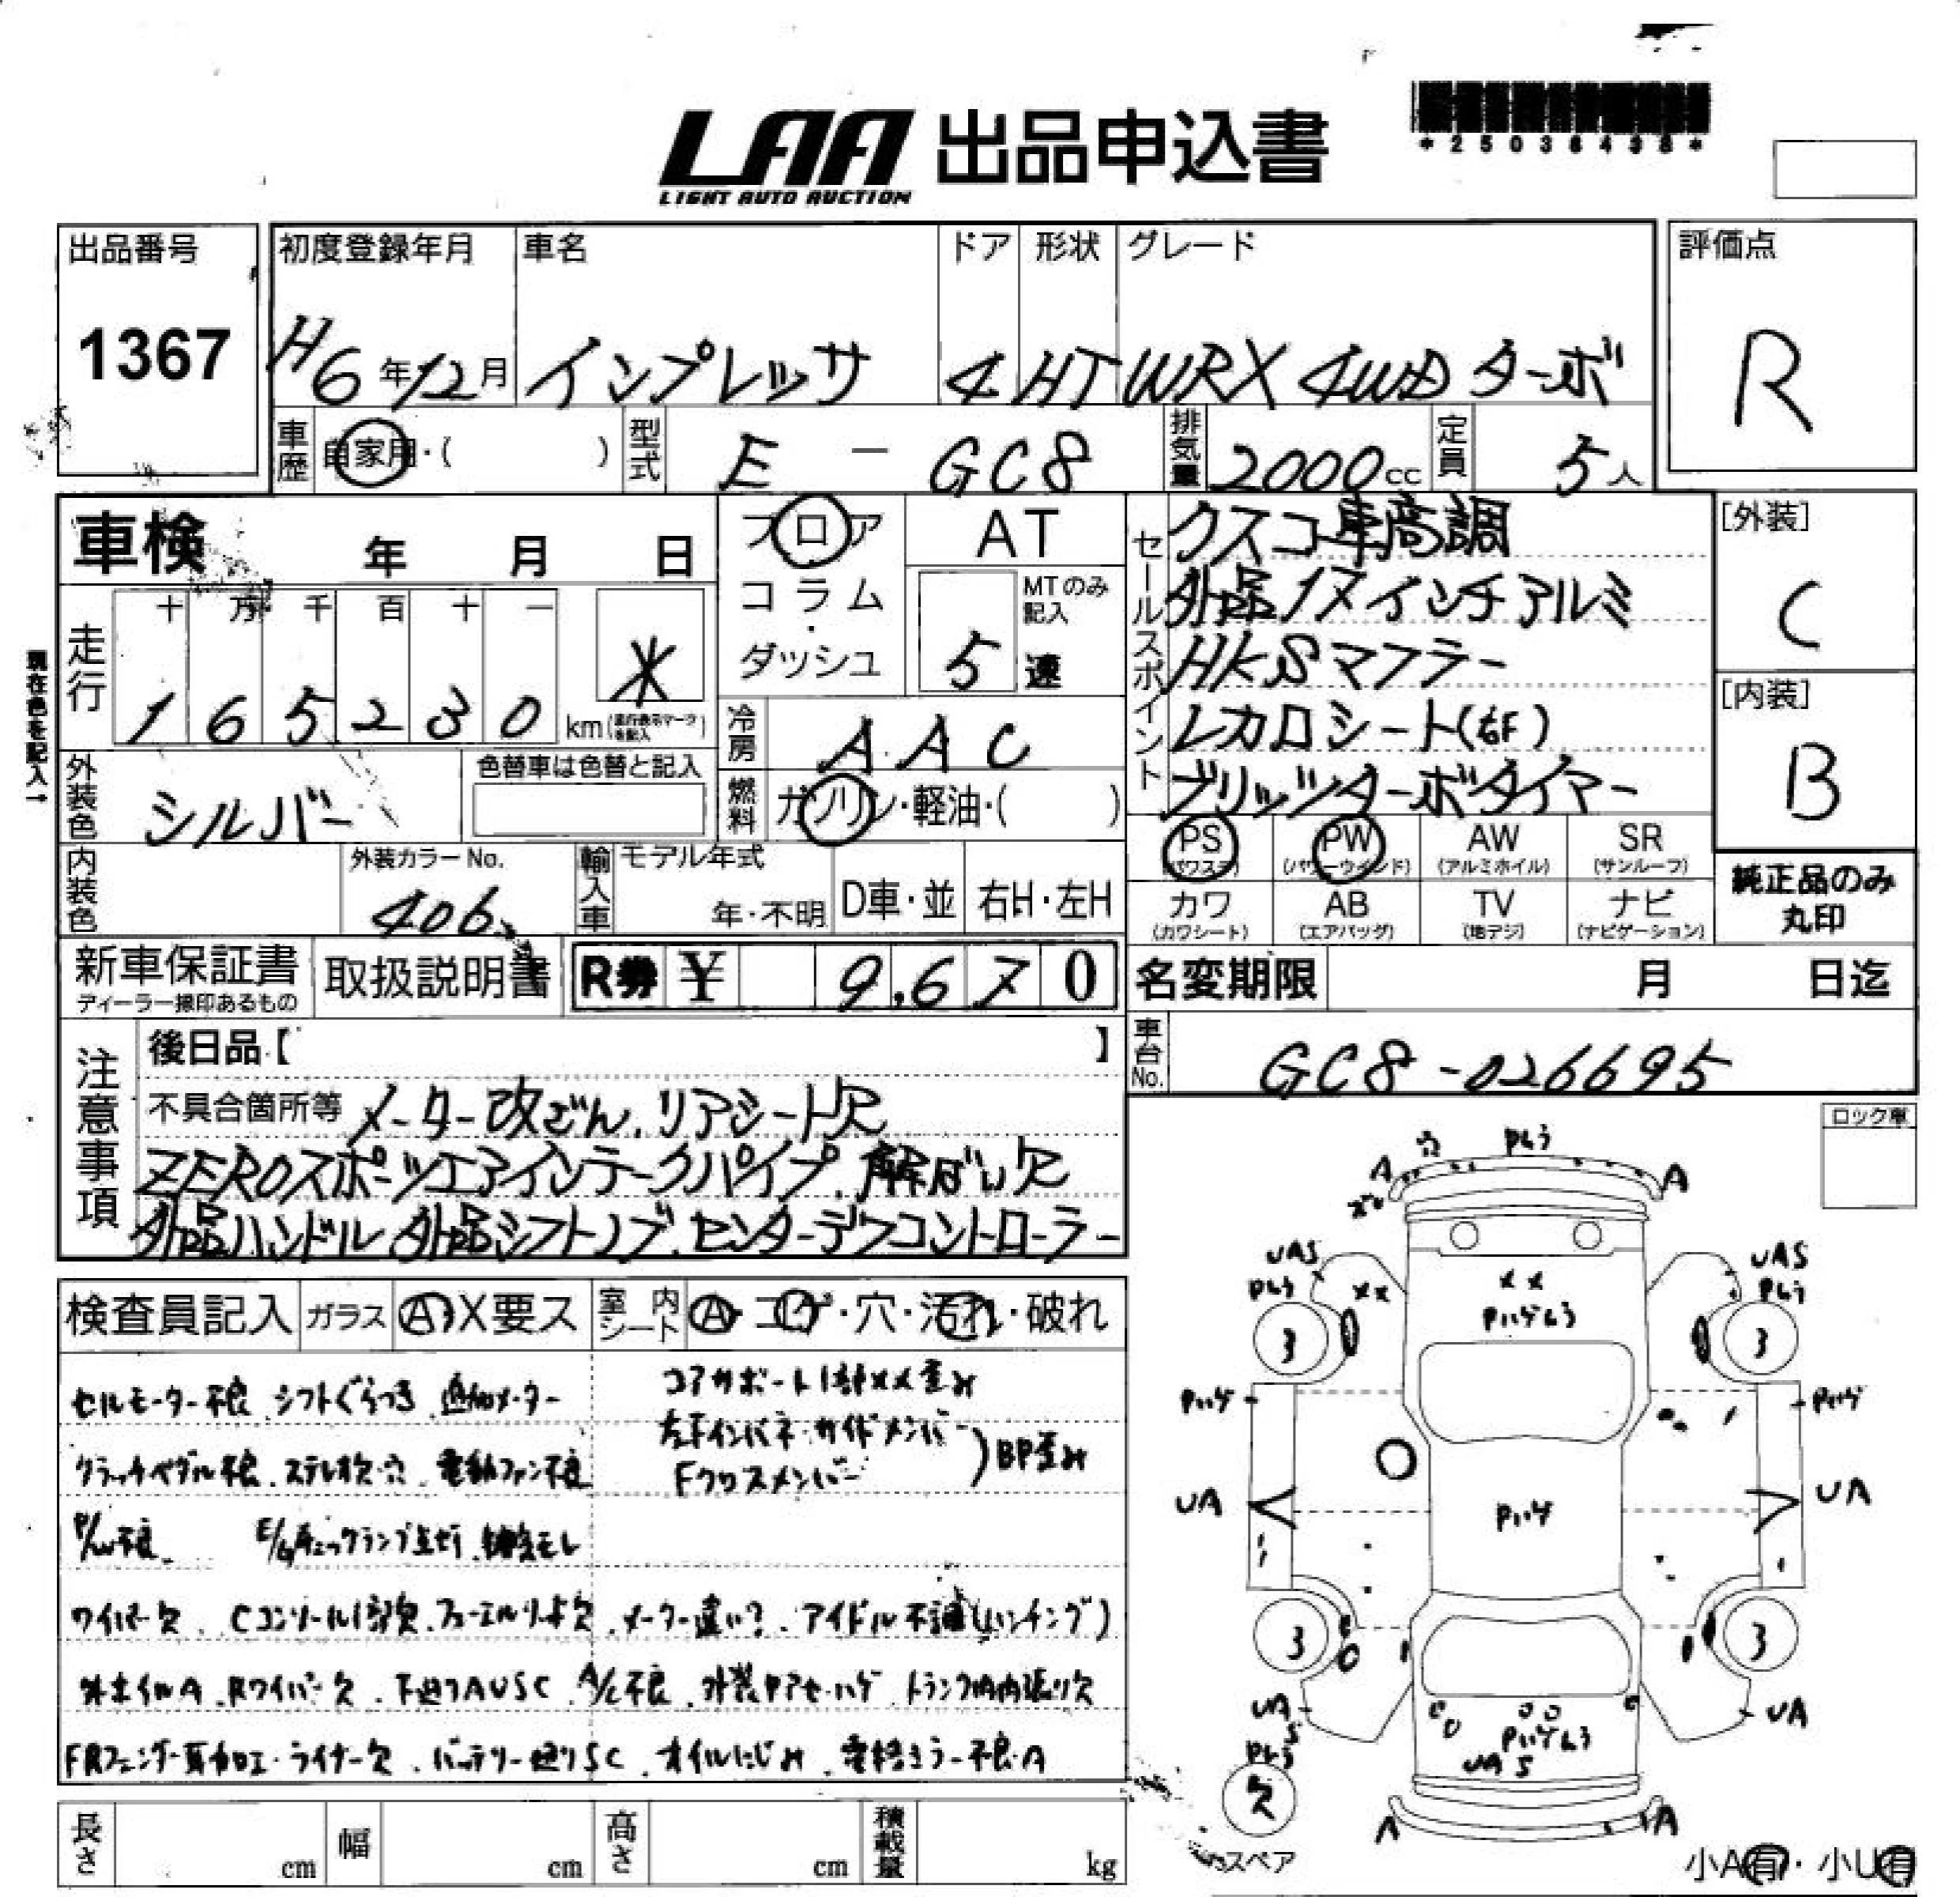 LAA 出品申込書
LIGHT AUTO AUCTION
出品番号
1367
初度登録年月
H6年12月
車名
インプレッサ
ドア
4
形状
HT
グレード
WRX 4WD ターボ
評価点
R
車歴
自家用・( )
型式
E - GC8
排気量
2000cc
定員
5人
車検 年 月 日
走行
十 万 千 百 十 一
1 6 5 2 3 0 km
*
現在色を記入→
外装色
シルバー
色替車は色替と記入
内装色
外装カラーNo.
406
輸入車
モデル年式
年・不明
D車・並
右H・左H
フロア
コラム
・
ダッシュ
AT
MTのみ記入
5 速
冷房
AAC
燃料
ガソリン・軽油・( )
セールスポイント
クスコ車高調
外品17インチアルミ
HKSマフラー
レカロシート(右F)
ブリッツターボタイマー
[外装]
C
[内装]
B
PS
(パワステ)
PW
(パワーウインド)
AW
(アルミホイル)
SR
(サンルーフ)
カワ
(カワシート)
AB
(エアバッグ)
TV
(地デジ)
ナビ
(ナビゲーション)
純正品のみ
丸印
新車保証書
ディーラー捺印あるもの
取扱説明書
R券 ¥ 9,670
名変期限 月 日迄
車台No.
GC8-026695
注意事項
後日品【 】
不具合箇所等 メーター改ざん、リアシート欠
ZEROスポーツエアインテークパイプ、解ばい欠
外品ハンドル 外品シフトノブ、センターデフコントローラー
ロック車
検査員記入
ガラス
A・X要ス
室内シート
A・コゲ・穴・汚れ・破れ
セルモーター不良、シフトぐらつき、追加メーター
クラッチペダル不良、ステレオ欠・穴、電動ファン不良
P/W不良、 E/Gチェックランプ点灯、排気モレ
コアサポート1部XX歪み
左FインパネサイドメンバーFクロスメンバー)BP歪み
ワイパー欠、Cコンソール1部欠、フューエルリッド欠、メーター違い?、アイドル不調(ハンチング)
外ホイルA、Rワイパー欠、下廻りAUSC、A/C不良、外装色アセ・ハゲ、トランク内内張り欠
FRフェンダー耳加工・ライナー欠、バッテリー廻りSC、オイルにじみ、電格ミラー不良・A
長さ cm
幅 cm
高さ cm
積載量 kg
穴
Pムラ
A
A
UAS
Pムラ
XX
XX
Pハゲムラ
UAS
Pムラ
3
3
Pハゲ
Pハゲ
UA
UA
Pハゲ
3
3
UA
UA
Pハゲムラ
UAS
欠
スペア
A
A
小A有・小U有